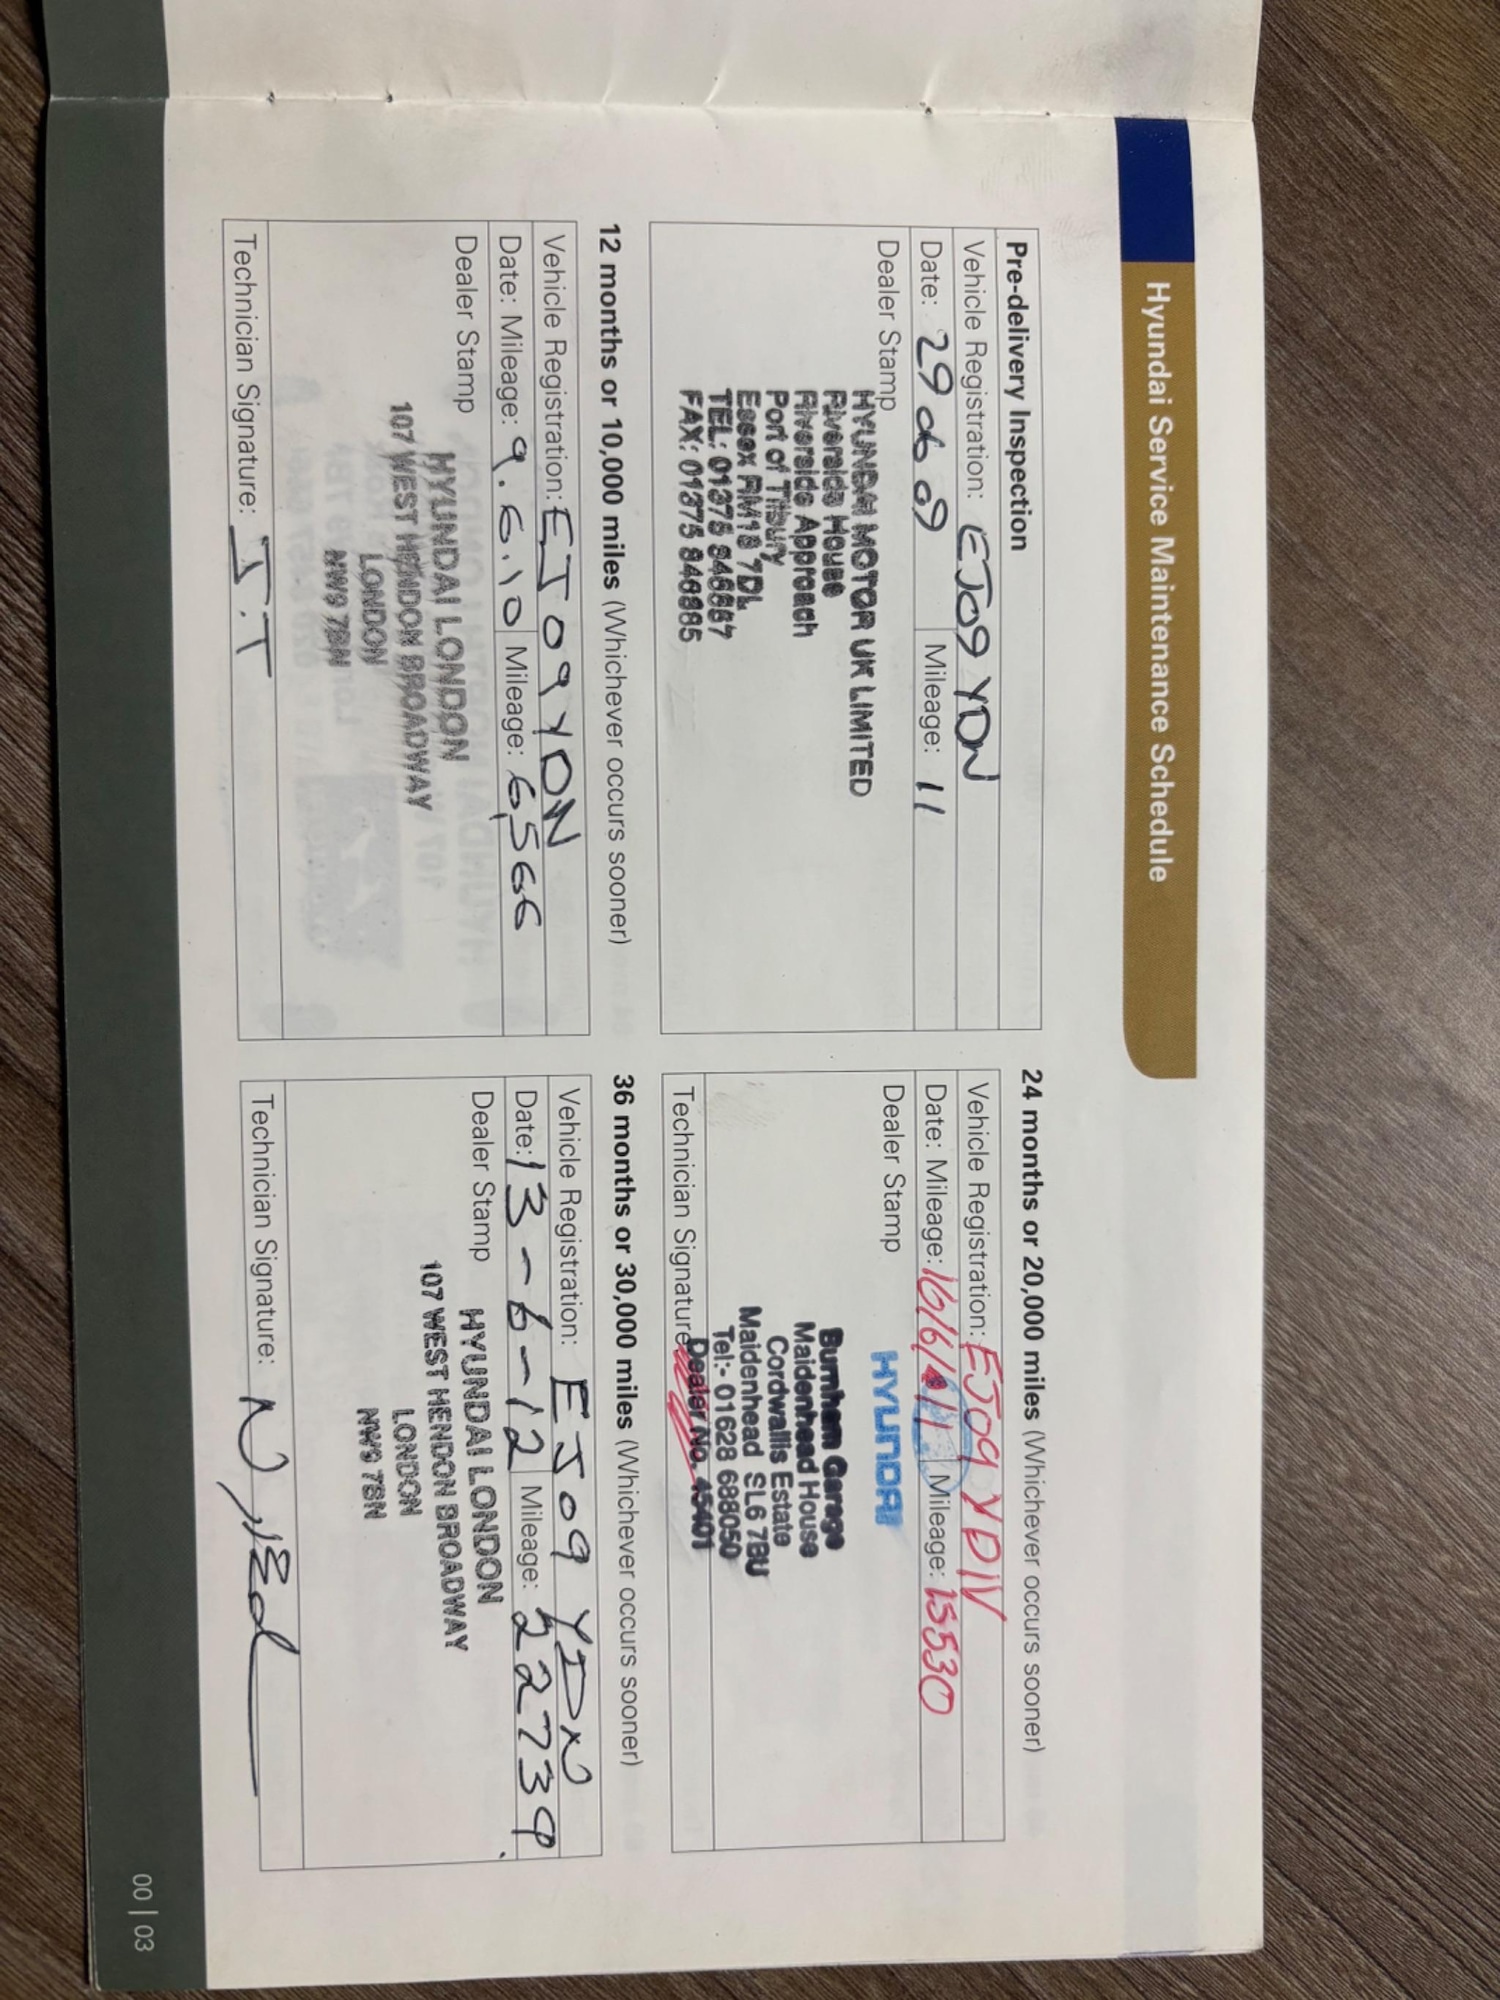 Hyundai Service Maintenance Schedule
Pre-delivery Inspection
Vehicle Registration: EJ09 YDN
Date: 29 06 09 Mileage: 11
Dealer Stamp
HYUNDAI MOTOR UK LIMITED
Riverside House
Riverside Approach
Port of Tilbury
Essex RM18 7DL
TEL: 01375
FAX: 01375
12 months or 10,000 miles (Whichever occurs sooner)
Vehicle Registration: EJ09YDN
Date: Mileage: 9.6.10 Mileage: 6,566
Dealer Stamp
HYUNDAI LONDON
107 WEST HENDON BROADWAY
LONDON
NW9 7BN
Technician Signature: J.T
24 months or 20,000 miles (Whichever occurs sooner)
Vehicle Registration: EJ09 YDN
Date: Mileage: 16/6/11 Mileage: 15530
Dealer Stamp
HYUNDAI
Burnham Garage
Maidenhead House
Cordwallis Estate
Maidenhead SL6 7BU
Tel:- 01628 688050
Dealer No. 45401
Technician Signature
36 months or 30,000 miles (Whichever occurs sooner)
Vehicle Registration: EJ09 YDN
Date: 13-6-12 Mileage: 22739.
Dealer Stamp
HYUNDAI LONDON
107 WEST HENDON BROADWAY
LONDON
NW9 7BN
Technician Signature:
00 | 03